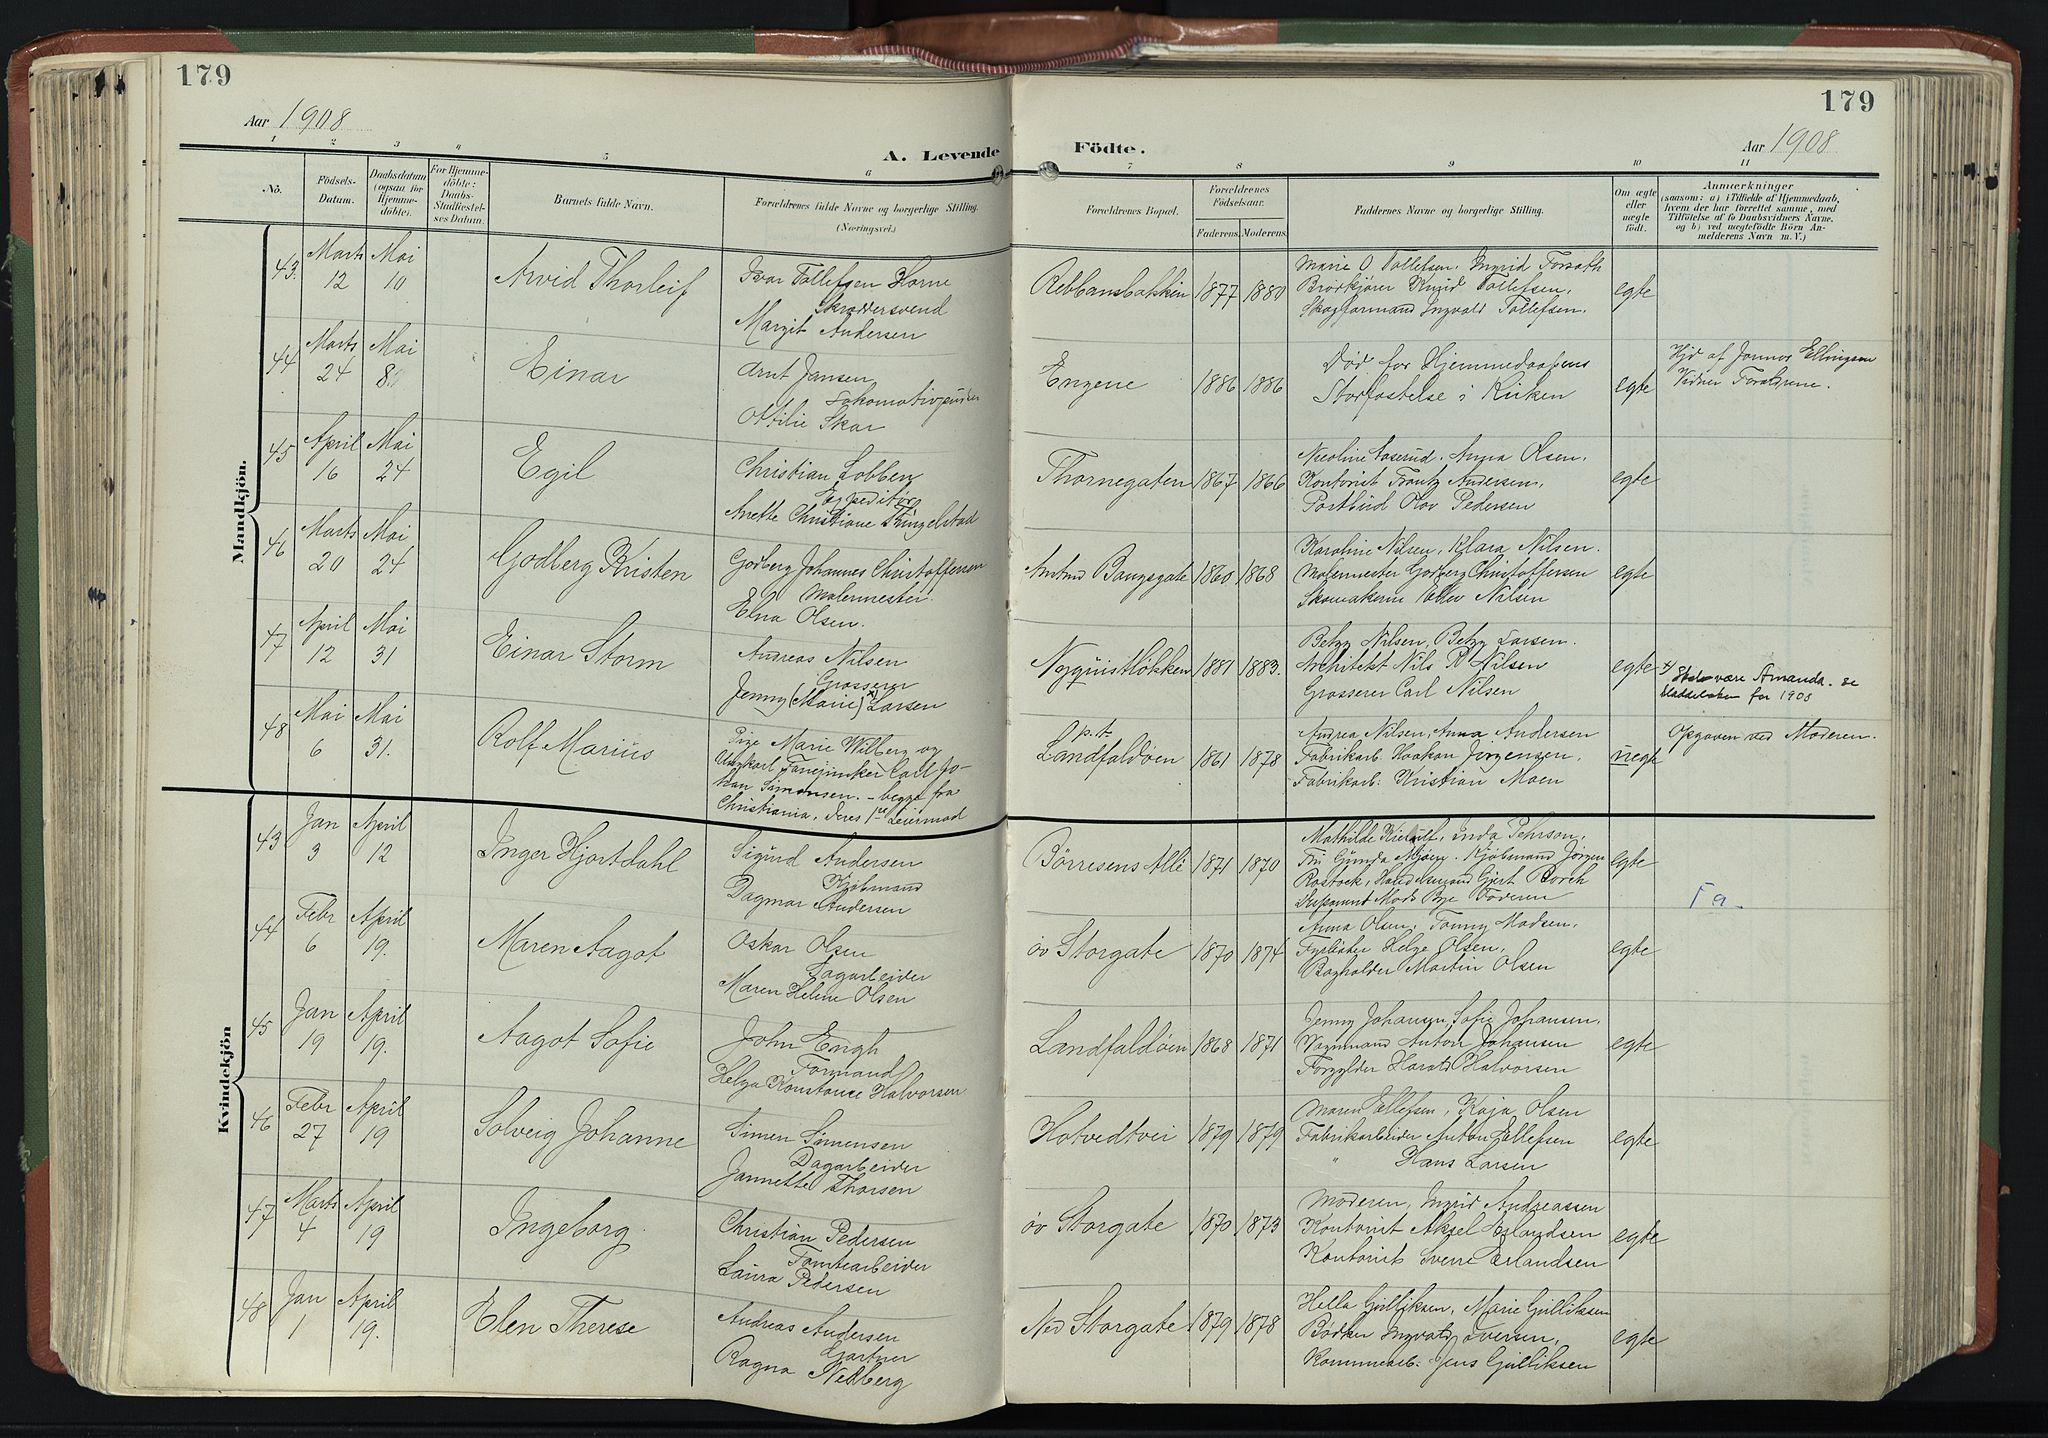 179
Aar 1908
A. Levende
1
2
3
4
5
6
No.
Födsels-
Datum.
Daabsdatum
(ogsaa for
Hjemme-
döbte).
For Hjemme-
döbte:
Daabs-
Stadfæstel-
ses Datum.
Barnets fulde Navn.
Forældrenes fulde Navne og borgerlige Stilling.
(Næringsvei.)
Mandkjön.
43. Marts 12 Mai 10 Arvid Thorleif
Ivar Tollefsen Horne
Skræddersvend
Margit Andersen
44 Marts 24 Mai 8 Einar
Arnt Jansen
Ottilie Skar
45 April 16 Mai 24 Egil
Christian Lobben
Expeditør
Anette Christiane
46 Marts 20 Mai 24 Godberg Kristen
Godberg Johannes Christoffersen
Malermester.
Elna Olsen.
47 April 12 Mai 31 Einar Storm
Andreas Nilsen
Grosserer
Jenny (Marie) x) Larsen
48 Mai 6 Mai 31. Rolf Marius
Pige Marie Wilberg og
Ungkarl Carl Jo-
han Simonsen. – begge fra
Christiania, deres 1ste Leiermaal
Kvindekjön
43 Jan 3 April 12 Inger Hjortdahl
Sigurd Andersen
Kjøbmand
Dagmar Andersen
44 Febr 6 April 19. Maren Aagot
Oskar Olsen
Sagarbeider
Maren Helene Olsen
45 Jan 19 April 19. Aagot Sofie
John Engh
Formand
Helga Konstance Halvorsen
46 Febr 27 April 19 Solveig Johanne
Simen Simensen
Dagarbeider
Jannette Thorsen
47 Marts 4 April 19 Ingeborg
Christian Pedersen
Tomtearbeider
Laura Pedersen
48 Jan 1 April 19. Elen Therese
Andreas Andersen
Gartner
Ragna Nedberg
179
Aar 1908
Födte.
7
8
9
10
11
Forældrenes Bopæl.
Forældrenes
Födselsaar.
Faderens. Moderens.
Faddernes Navne og borgerlige Stilling.
Om ægte
eller
uægte
födt.
Anmærkninger
(saasom: a) i Tilfælde af Hjemmedaab,
hvem der har forrettet samme, med
Tilföielse af to Daabsvidners Navne.
og b) ved uægtefödte Börn An-
melderens Navn m. V.)
Marie O Tollefsen, Ingrid Forsath
Rebbansbakken 1877 1880 Brødkjører Knud Tollefsen, egte
Skogformand Ingvald Tollefsen.
Død før Hjemmedaabens
Engene 1886 1886 Stadfæstelse i Kirken egte
Hjd af Jonnes Ellingsen
Vidner Forældrene.
Nicoline Aaserud. Anna Olsen.
Thornegaten 1867 1866 Kontorist Frantz Andersen, egte
Postbud Olav Pedersen
Karoline Nilsen, Klara Nilsen.
Amtmd Bangsgate 1860 1868 Malermester Godberg Christoffersen egte
Skomakerm Nilsen
Betzy Nilsen, Betzy Larsen.
Nyquistløkken 1881 1883. Architekt Nils R Nilsen egte
Grosserer Carl Nilsen
x) Skal være Amanda. se
for 1908
Andrea Nilsen, Anna Andersen
p.t.
Landfaldøen 1861 1878 Fabrikarb. Haakon Jørgensen, uegte
Fabrikarb. Kristian Moen
Opgaven ved Moderen.
Mathilde Kierulf, Pehrson,
Børresens Allé 1871 1870 Fru Gunda Mjøen. Kjøbmand Jörgen egte
Rostock, Handelsmand Gjert Borch
Mads Bye Faderen
Fa.
Anna Olsen, Fanny Madsen.
Øv Storgate 1870 1874 Fyrbøter Helge Olsen, egte
Bogholder Martin Olsen
Jenny Johansen, Sofie Johansen.
Landfaldøen 1868 1871 Vognmand Anton Johansen egte
Forgylder Harald Halvorsen
Maren Ellefsen, Kaja Olsen
Hotvedtvei 1879 1879 Fabrikarbeider Anton Ellefsen egte
" Hans Larsen
Moderen, Ingrid Andreassen
Øv Storgate 1870 1873 Kontorist Aksel Erlandsen egte
Kontorist Sverre Erlandsen
Hella Gulliksen, Marie Gulliksen
Ned Storgate 1879 1878 Bødker Ingvald Iversen, egte
Kommunearb. Jens Gulliksen